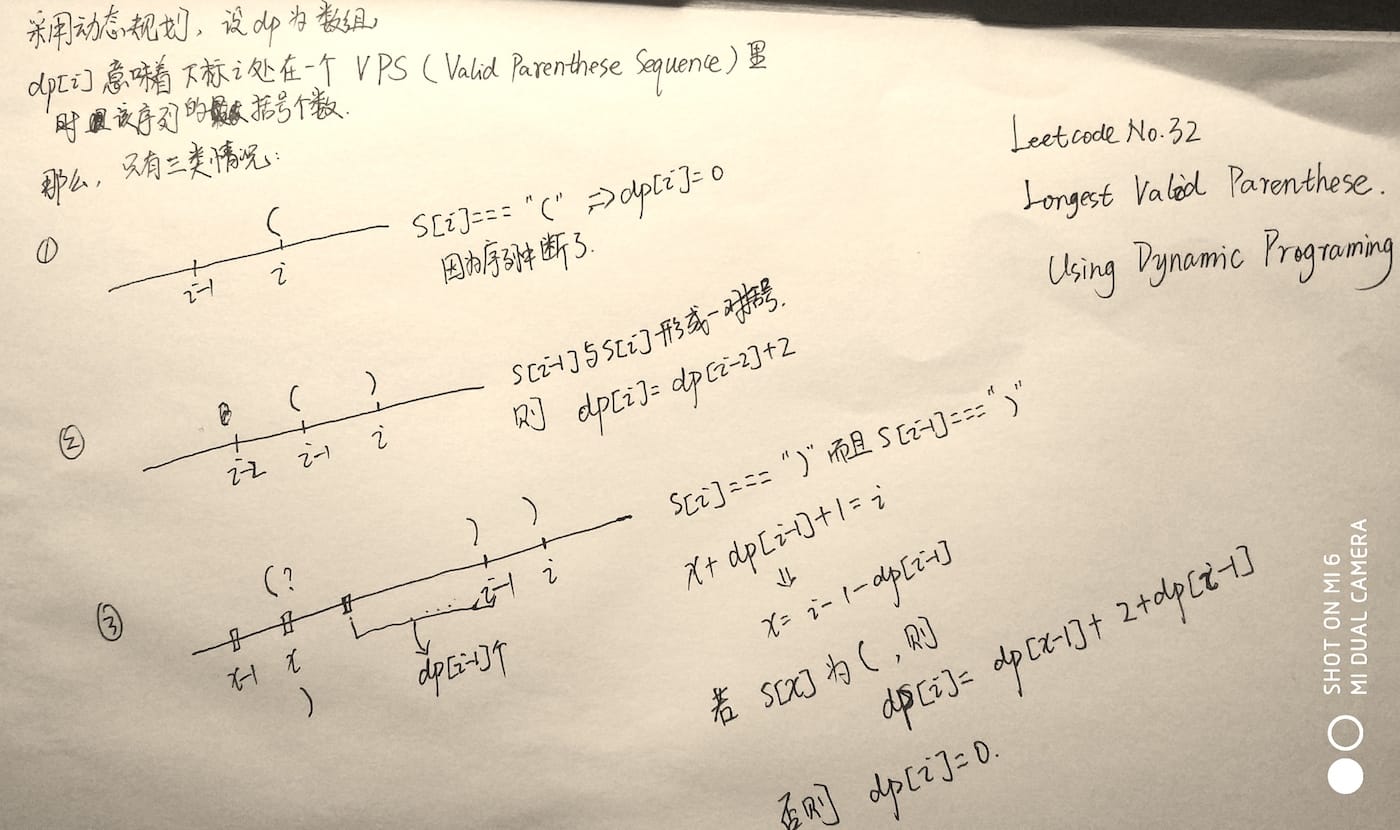 采用动态规划，设dp为数组
dp[i]意味着下标i处在一个 VPS (Valid Parenthese Sequence) 里
时该序列的括号个数.
那么，只有三类情况:
Leetcode No.32
Longest Valid Parenthese.
Using Dynamic Programing
①
(
i-1 i
S[i]=== "(" => dp[i]=0
因为序列中断了.
②
( )
i-2 i-1 i
S[i-1]与S[i]形成一对括号.
则 dp[i]= dp[i-2]+2
③
(? ) )
x-1 x i-1 i
)
dp[i-1]个
S[i]=== ")" 而且 S[i-1]===")"
x+dp[i-1]+1= i
⇓
x= i-1-dp[i-1]
若 S[x]为(, 则
dp[i]= dp[x-1]+ 2+dp[i-1]
否则 dp[i]=0.
SHOT ON MI 6
MI DUAL CAMERA